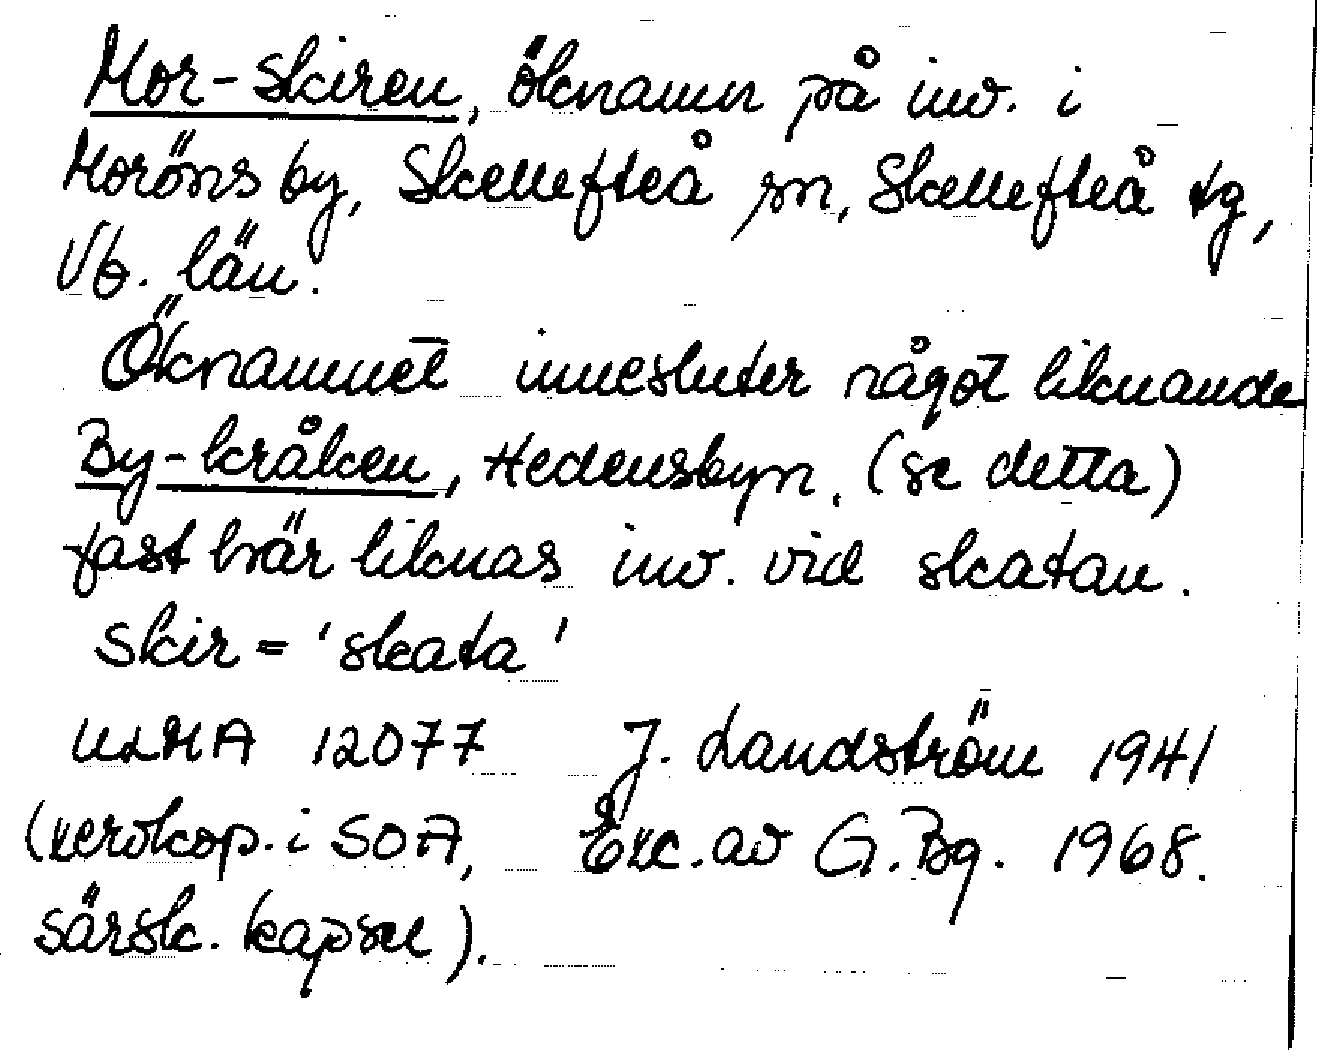 Mor-skiren, öknamn på inv. i
Moröns by, Skellefteå sn, Skellefteå tg,
Vb. län.
Öknamnet innesluter något liknande
By-kråken, Hedensbyn, (se detta)
fast här liknas inv. vid skatan.
skir = 'skata'
ULMA 12077 J. Landström 1941
(xerokop. i SOA, Exc. av G. Bg. 1968.
särsk. kapsel).